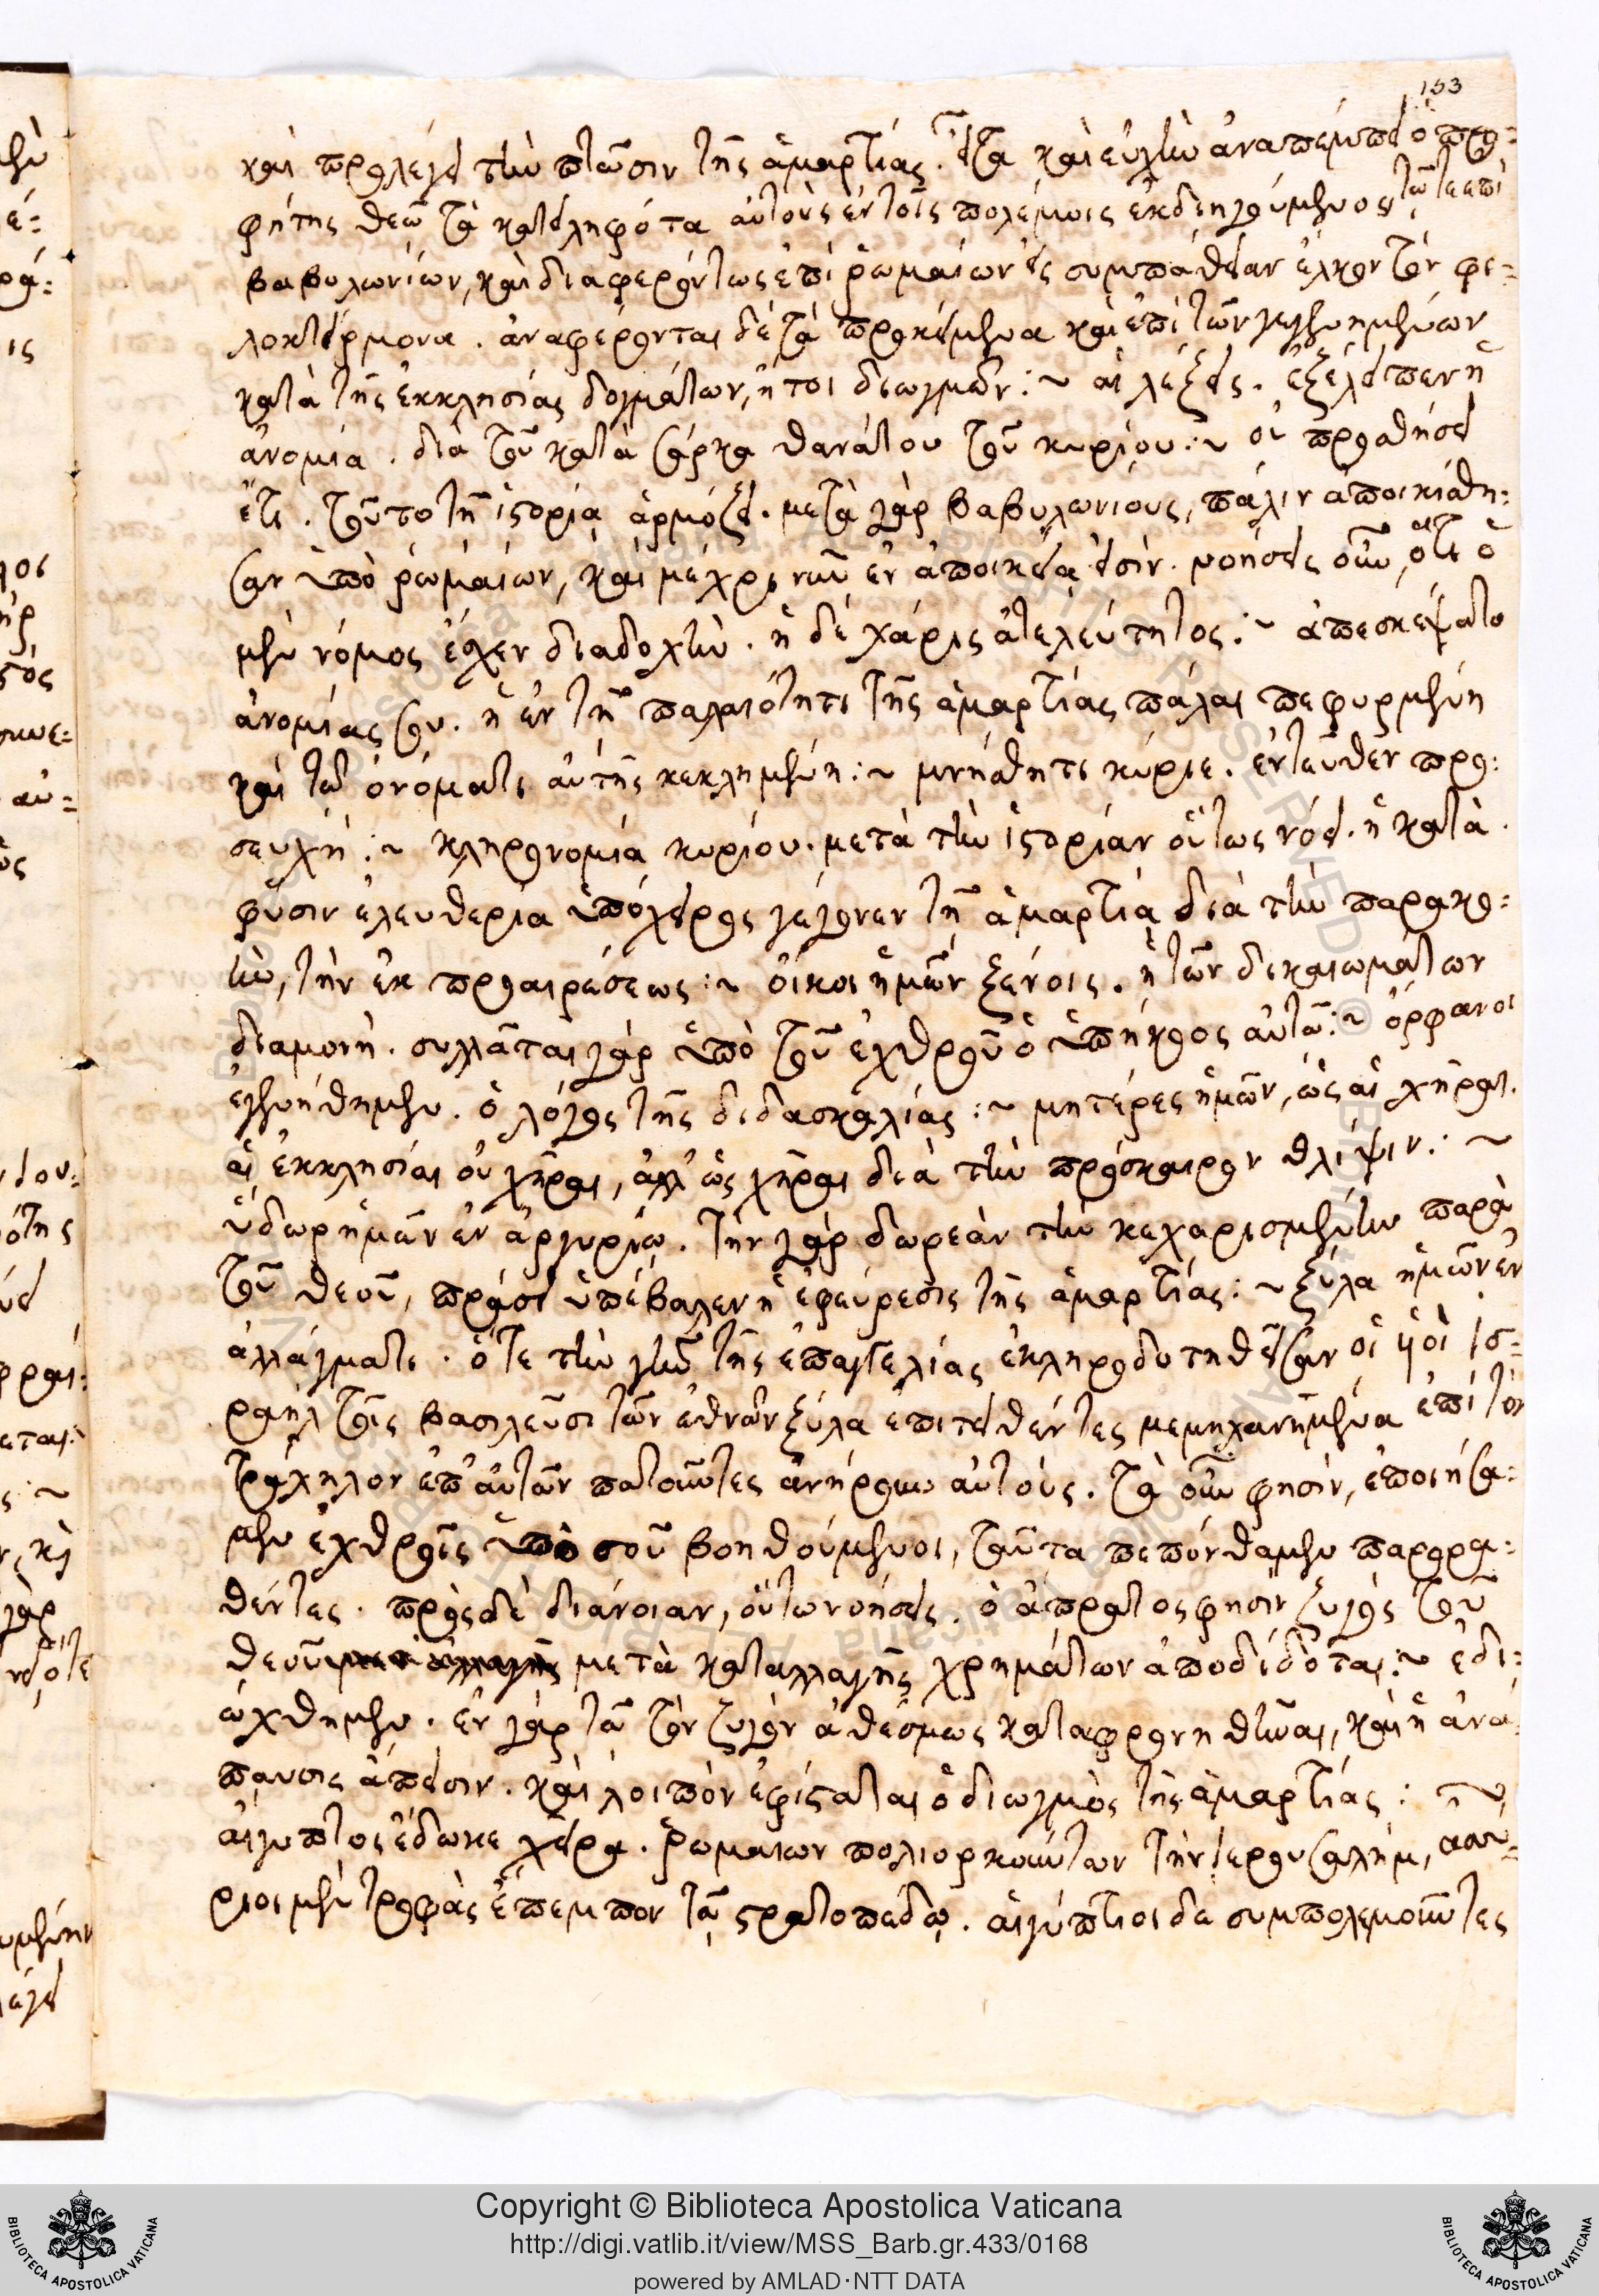 153
καὶ προλέγει τὴν πτῶσιν τῆς ἁμαρτίας. εἶτα καὶ εὐχὴν ἀναπέμπει ὁ προ-
φήτης θεῷ τὰ κατειληφότα αὐτοὺς ἐν τοῖς πολέμοις ἐκδιηγούμενος τῷ τε ἐπὶ
βαβυλωνίων, καὶ διαφερόντως ἐπὶ ῥωμαίων εἰς συμπάθειαν ἕλκων τὸν φι-
λοικτίρμονα. ἀναφέρονται δὲ τὰ προκείμενα καὶ ἐπὶ τῶν γεγενημένων
κατὰ τῆς ἐκκλησίας δογμάτων, ἤτοι διωγμῶν :~ αἱ λέξεις. ἐξέλειπεν ἡ
ἀνομία. διὰ τοῦ κατὰ σάρκα θανάτου τοῦ κυρίου :~ οὐ προσθήσει
ἔτι. τοῦτο τῇ ἱστορίᾳ ἁρμόζει. μετὰ γὰρ βαβυλωνίους, πάλιν ἀποικίσθη-
σαν ὑπὸ ῥωμαίων, καὶ μέχρι νῦν ἐν ἀποικείᾳ εἰσίν. νοήσεις οὖν, ὅτι ὁ
μὲν νόμος ἔσχεν διαδοχὴν. ἡ δὲ χάρις ἀτελεύτητος :~ ἀπεσκέψατο
ἀνομίας σου. ἡ ἐν τῇ παλαιότητι τῆς ἁμαρτίας πάλαι πεφυρμένη
καὶ τῷ ὀνόματι αὐτῆς κεκλημένη :~ μνήσθητι κύριε. ἐντεῦθεν προ-
σευχή :~ κληρονομία κυρίου. μετὰ τὴν ἱστορίαν οὕτως νόει. ἡ κατὰ
φύσιν ἐλευθερία ὑπόχειρος γέγονεν τῇ ἁμαρτίᾳ διὰ τὴν παρακο-
ὴν, τὴν ἐκ προαιρέσεως :~ οἶκοι ἡμῶν ξένοις. ἡ τῶν δικαιωμάτων
διαμονή. συλλᾶται γὰρ ὑπὸ τοῦ ἐχθροῦ ὁ ὑπήκοος αὐτῷ :~ ὀρφανοὶ
ἐγενήθημεν. ὁ λόγος τῆς διδασκαλίας :~ μητέρες ἡμῶν, ὡς αἱ χῆραι.
αἱ ἐκκλησίαι οὐ χῆραι, ἀλλ' ὡς χῆραι διὰ τὴν πρόσκαιρον θλίψιν :~
ὕδωρ ἡμῶν ἐν ἀργυρίῳ. τὴν γὰρ δωρεὰν τὴν κεχαρισμένην παρὰ
τοῦ θεοῦ, πράσει ὑπέβαλεν ἡ ἐφεύρεσις τῆς ἁμαρτίας :~ ξύλα ἡμῶν ἐν
ἀλλάγματι. ὅτε τὴν γῆν τῆς ἐπαγγελίας ἐκληροδοτηθεῖσαν οἱ υἱοὶ ἰσ-
ραὴλ τοῖς βασιλεῦσι τῶν ἐθνῶν ξύλα ἐπιτεθέντες μεμηχανημένα ἐπὶ τὸν
τράχηλον ἐπ' αὐτῶν πατοῦντες ἀνήρουν αὐτούς. τὰ οὖν φησὶν, ἐποιήσα-
μεν ἐχθροῖς ὑπὸ σοῦ βοηθούμενοι, ταῦτα πεπόνθαμεν παροραθέντες
θέντες. πρὸς δὲ διάνοιαν, οὕτω νοήσεις. ὁ ἄπρατος φησὶν ζυγὸς τοῦ
θεοῦ μετὰ καταλλαγῆς χρημάτων ἀποδίδοται :~ ἐδι-
ώχθημεν. ἐν γὰρ τῷ τὸν ζυγὸν ἀθέσμως καταφρονηθῆναι, καὶ ἡ ἀνά-
παυσις ἄπεισιν. καὶ λοιπὸν ἐφίσταται ὁ διωγμὸς τῆς ἁμαρτίας :~
αἴγυπτος ἔδωκε χεῖρα. ῥωμαίων πολιορκούντων τὴν ἱερουσαλήμ, ἀσσύ-
ριοι μὲν τροφὰς ἔπεμπον τῷ στρατοπέδῳ. αἰγύπτιοι δὲ συμπολεμοῦντες
Copyright © Biblioteca Apostolica Vaticana
http://digi.vatlib.it/view/MSS_Barb.gr.433/0168
powered by AMLAD·NTT DATA
BIBLIOTECA APOSTOLICA VATICANA
BIBLIOTECA APOSTOLICA VATICANA